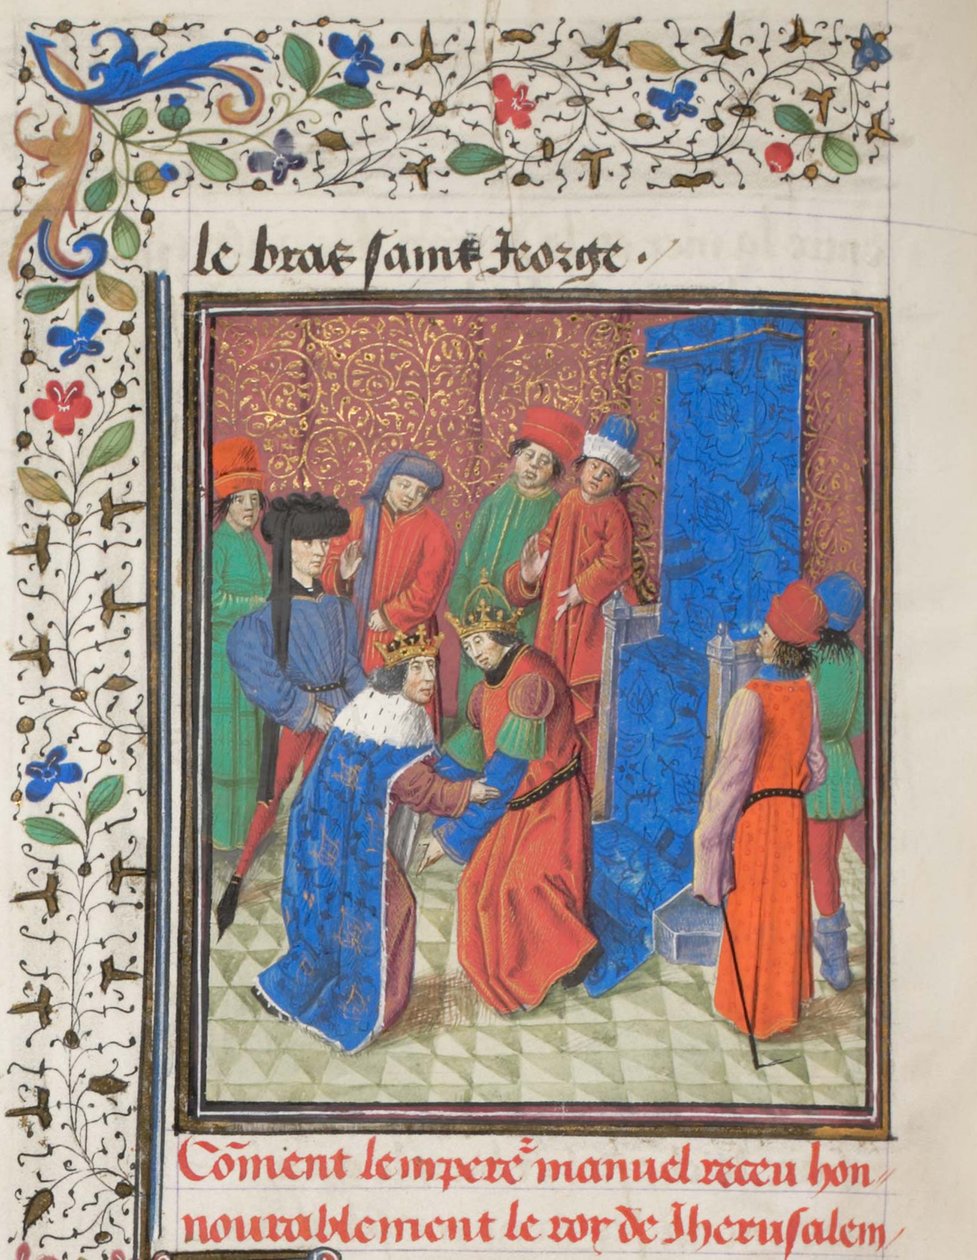 le bras saint Jeorge .
Co͂ment lempere͛ manuel receu hon
nourablement le roy de Jherusalem